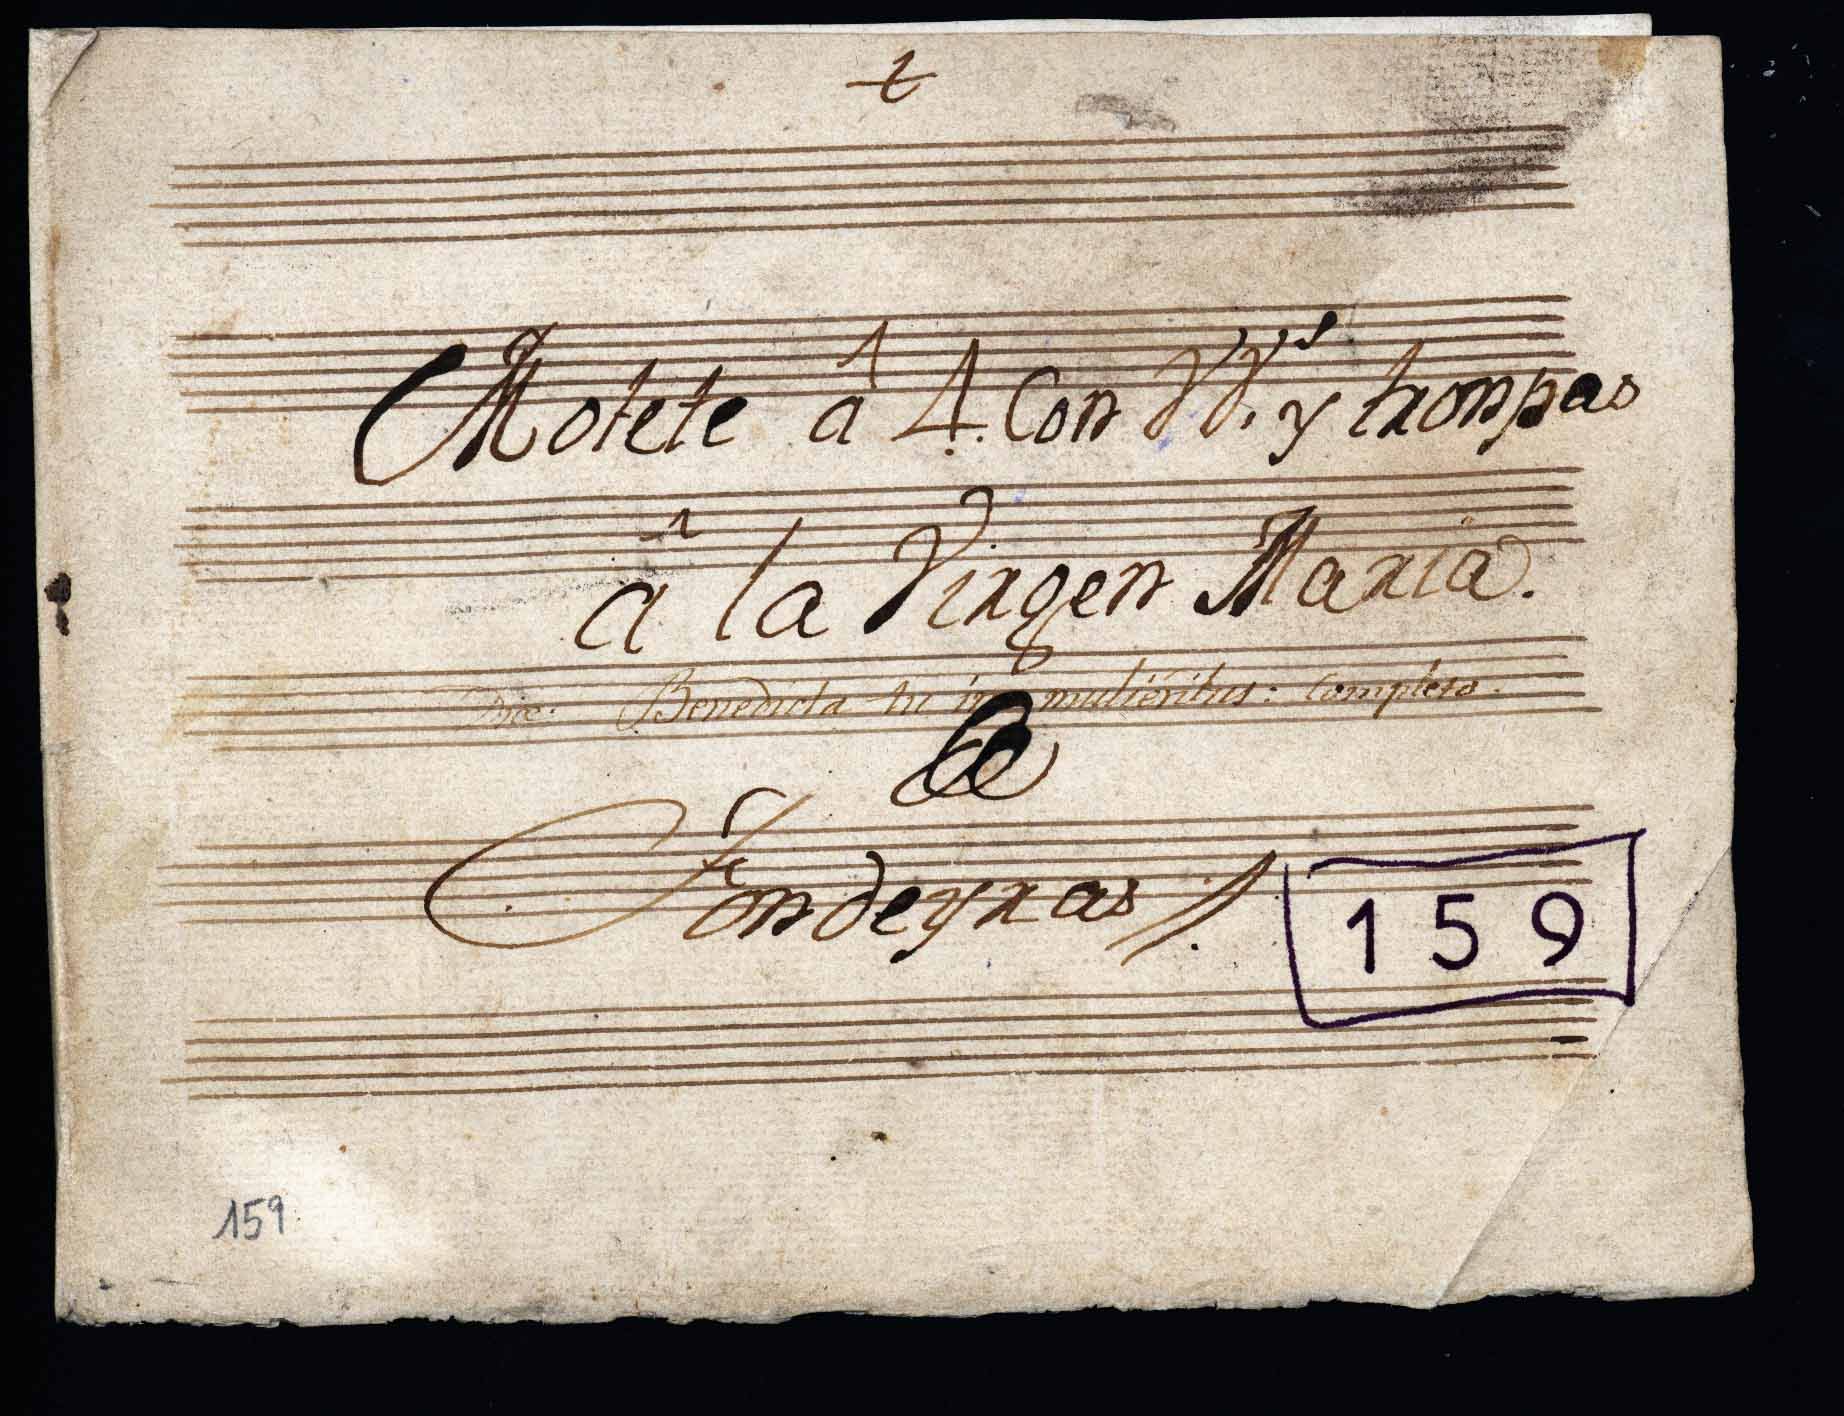 Motete â 4. Con VV.ˢ y trompas
â la Virgen Maria.
Dice: Benedicta tu in mulieribus: Completo.
De
Fondeyras
159
159